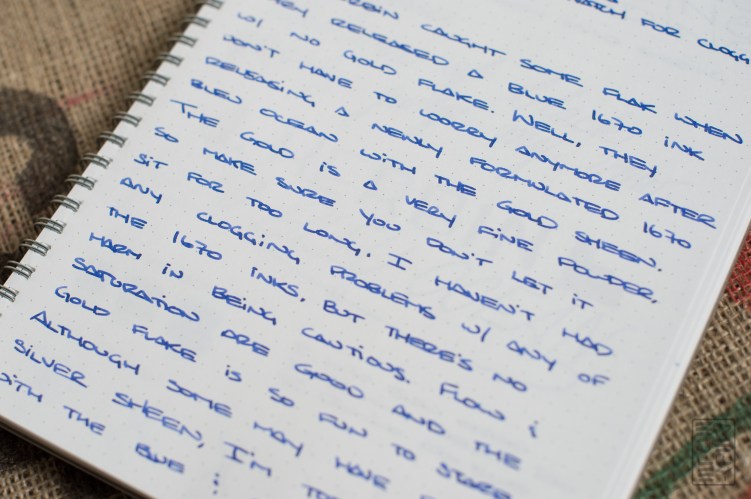 WATCH FOR CLOGG
CAUGHT SOME FLAK WHEN
THEY RELEASED A BLUE 1670 INK
W/ NO GOLD FLAKE. WELL, THEY
DON'T HAVE TO WORRY ANYMORE AFTER
RELEASING A NEWLY FORMULATED 1670
BLEU OCEAN WITH THE GOLD SHEEN.
THE GOLD IS A VERY FINE POWDER,
SO MAKE SURE YOU DON'T LET IT
SIT FOR TOO LONG. I HAVEN'T HAD
ANY CLOGGING PROBLEMS W/ ANY OF
THE 1670 INKS, BUT THERE'S NO
HARM IN BEING CAUTIOUS. FLOW &
SATURATION ARE GOOD AND THE
GOLD FLAKE IS SO FUN TO STARE
ALTHOUGH SOME MAY HAVE
SILVER SHEEN, I'M TO
WITH THE BLUE &